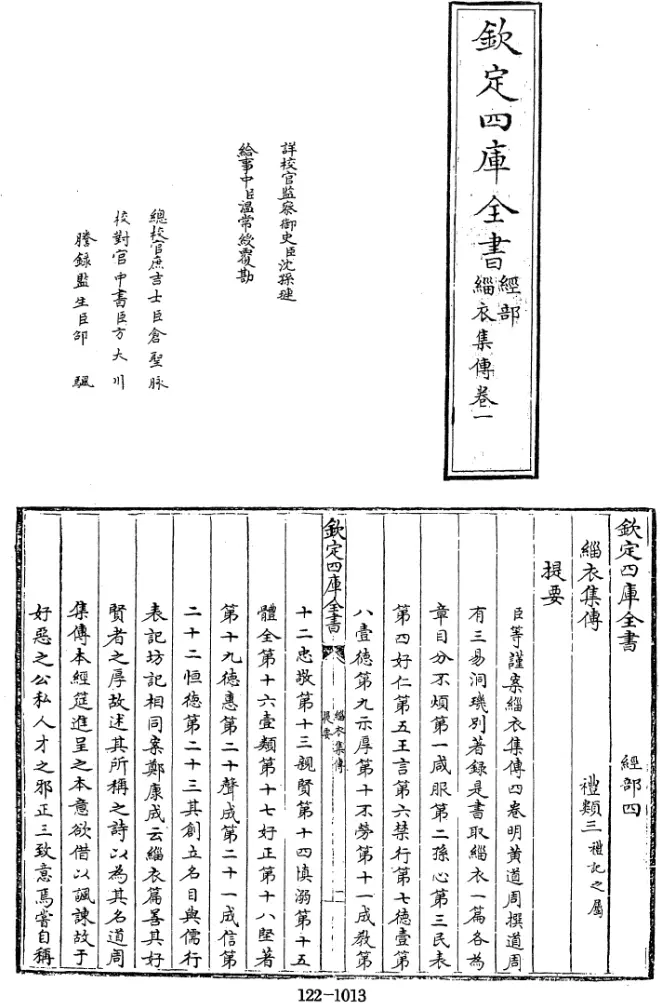 欽定四庫全書
經部
緇衣集傳卷一
詳校官監察御史臣沈孫璉
給事中臣溫常綬覆勘
總校官庶吉士臣倉聖脉
校對官中書臣方大川
謄錄監生臣邵颿
欽定四庫全書 經部四
緇衣集傳 禮類三禮記之屬
提要
臣等謹案緇衣集傳四卷明黃道周撰道周
有三易洞璣別著錄是書取緇衣一篇各為
章目分不煩第一咸服第二孫心第三民表
第四好仁第五王言第六禁行第七德壹第
八壹德第九示厚第十不勞第十一成教第
欽定四庫全書 緇衣集傳 提要 一
十二忠敬第十三親賢第十四慎溺第十五
體全第十六壹類第十七好正第十八堅著
第十九德惠第二十聲成第二十一成信第
二十二恒德第二十三其創立名目與儒行
表記坊記相同案鄭康成云緇衣篇善其好
賢者之厚故述其所稱之詩以為其名道周
集傳本經筵進呈之本意欲借以諷諫故于
好惡之公私人才之邪正三致意焉嘗自稱
122-1013